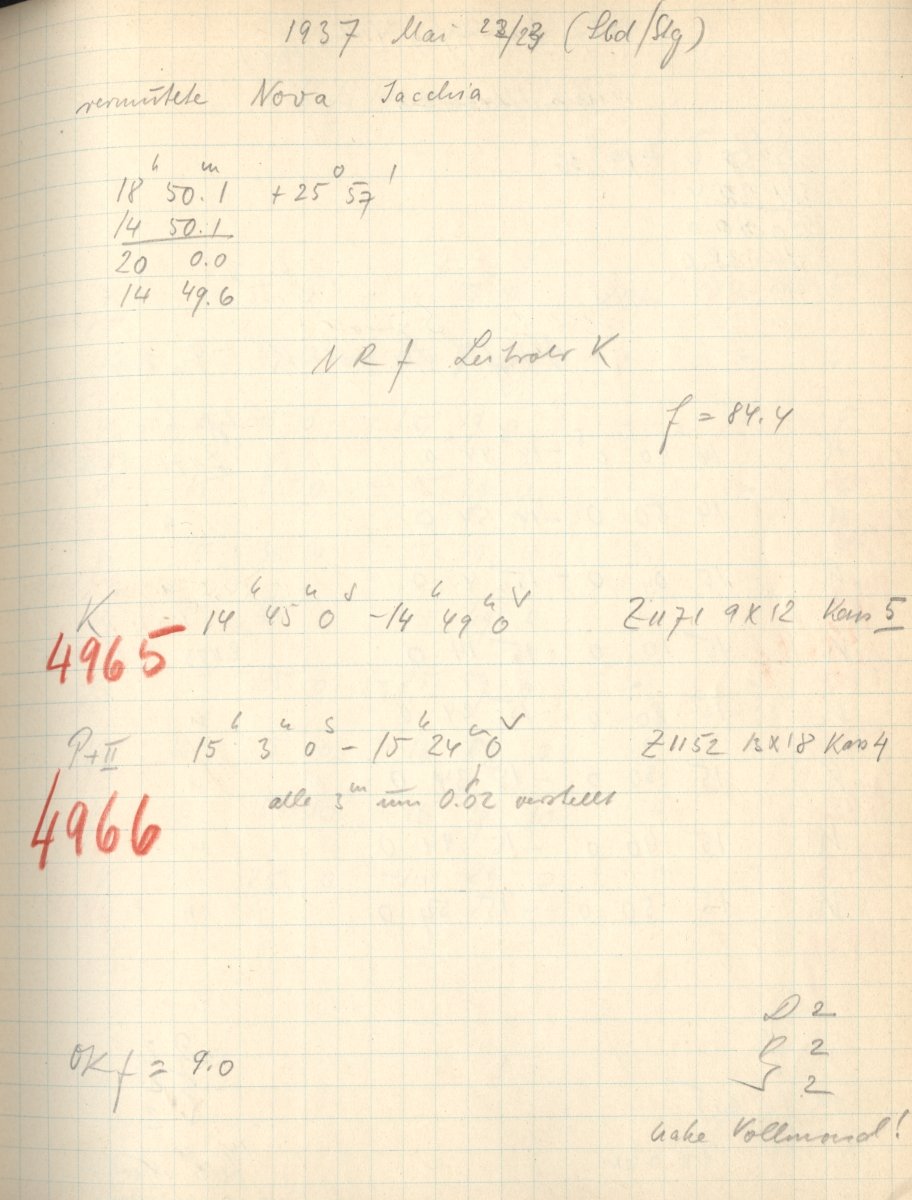 1937 Mai 22/23 (Sbd/Stg)
vermutete Nova Jacchia
18ʰ 50.1ᵐ +25° 57'
14 50.1
20 0.0
14 49.6
N R f Leitrohr K
f = 84.4
K 14ʰ 45ᵐ 0ˢ - 14ʰ 49ᵐ 0ˢ Z 1171 9x12 Kass 5
4965
P+II 15ʰ 3ᵐ 0ˢ - 15ʰ 24ᵐ 0ˢ Z 1152 13x18 Kass 4
4966
alle 3ᵐ um 0.02 verstellt
OK f = 9.0
D 2
R 2
S 2
nahe Vollmond!